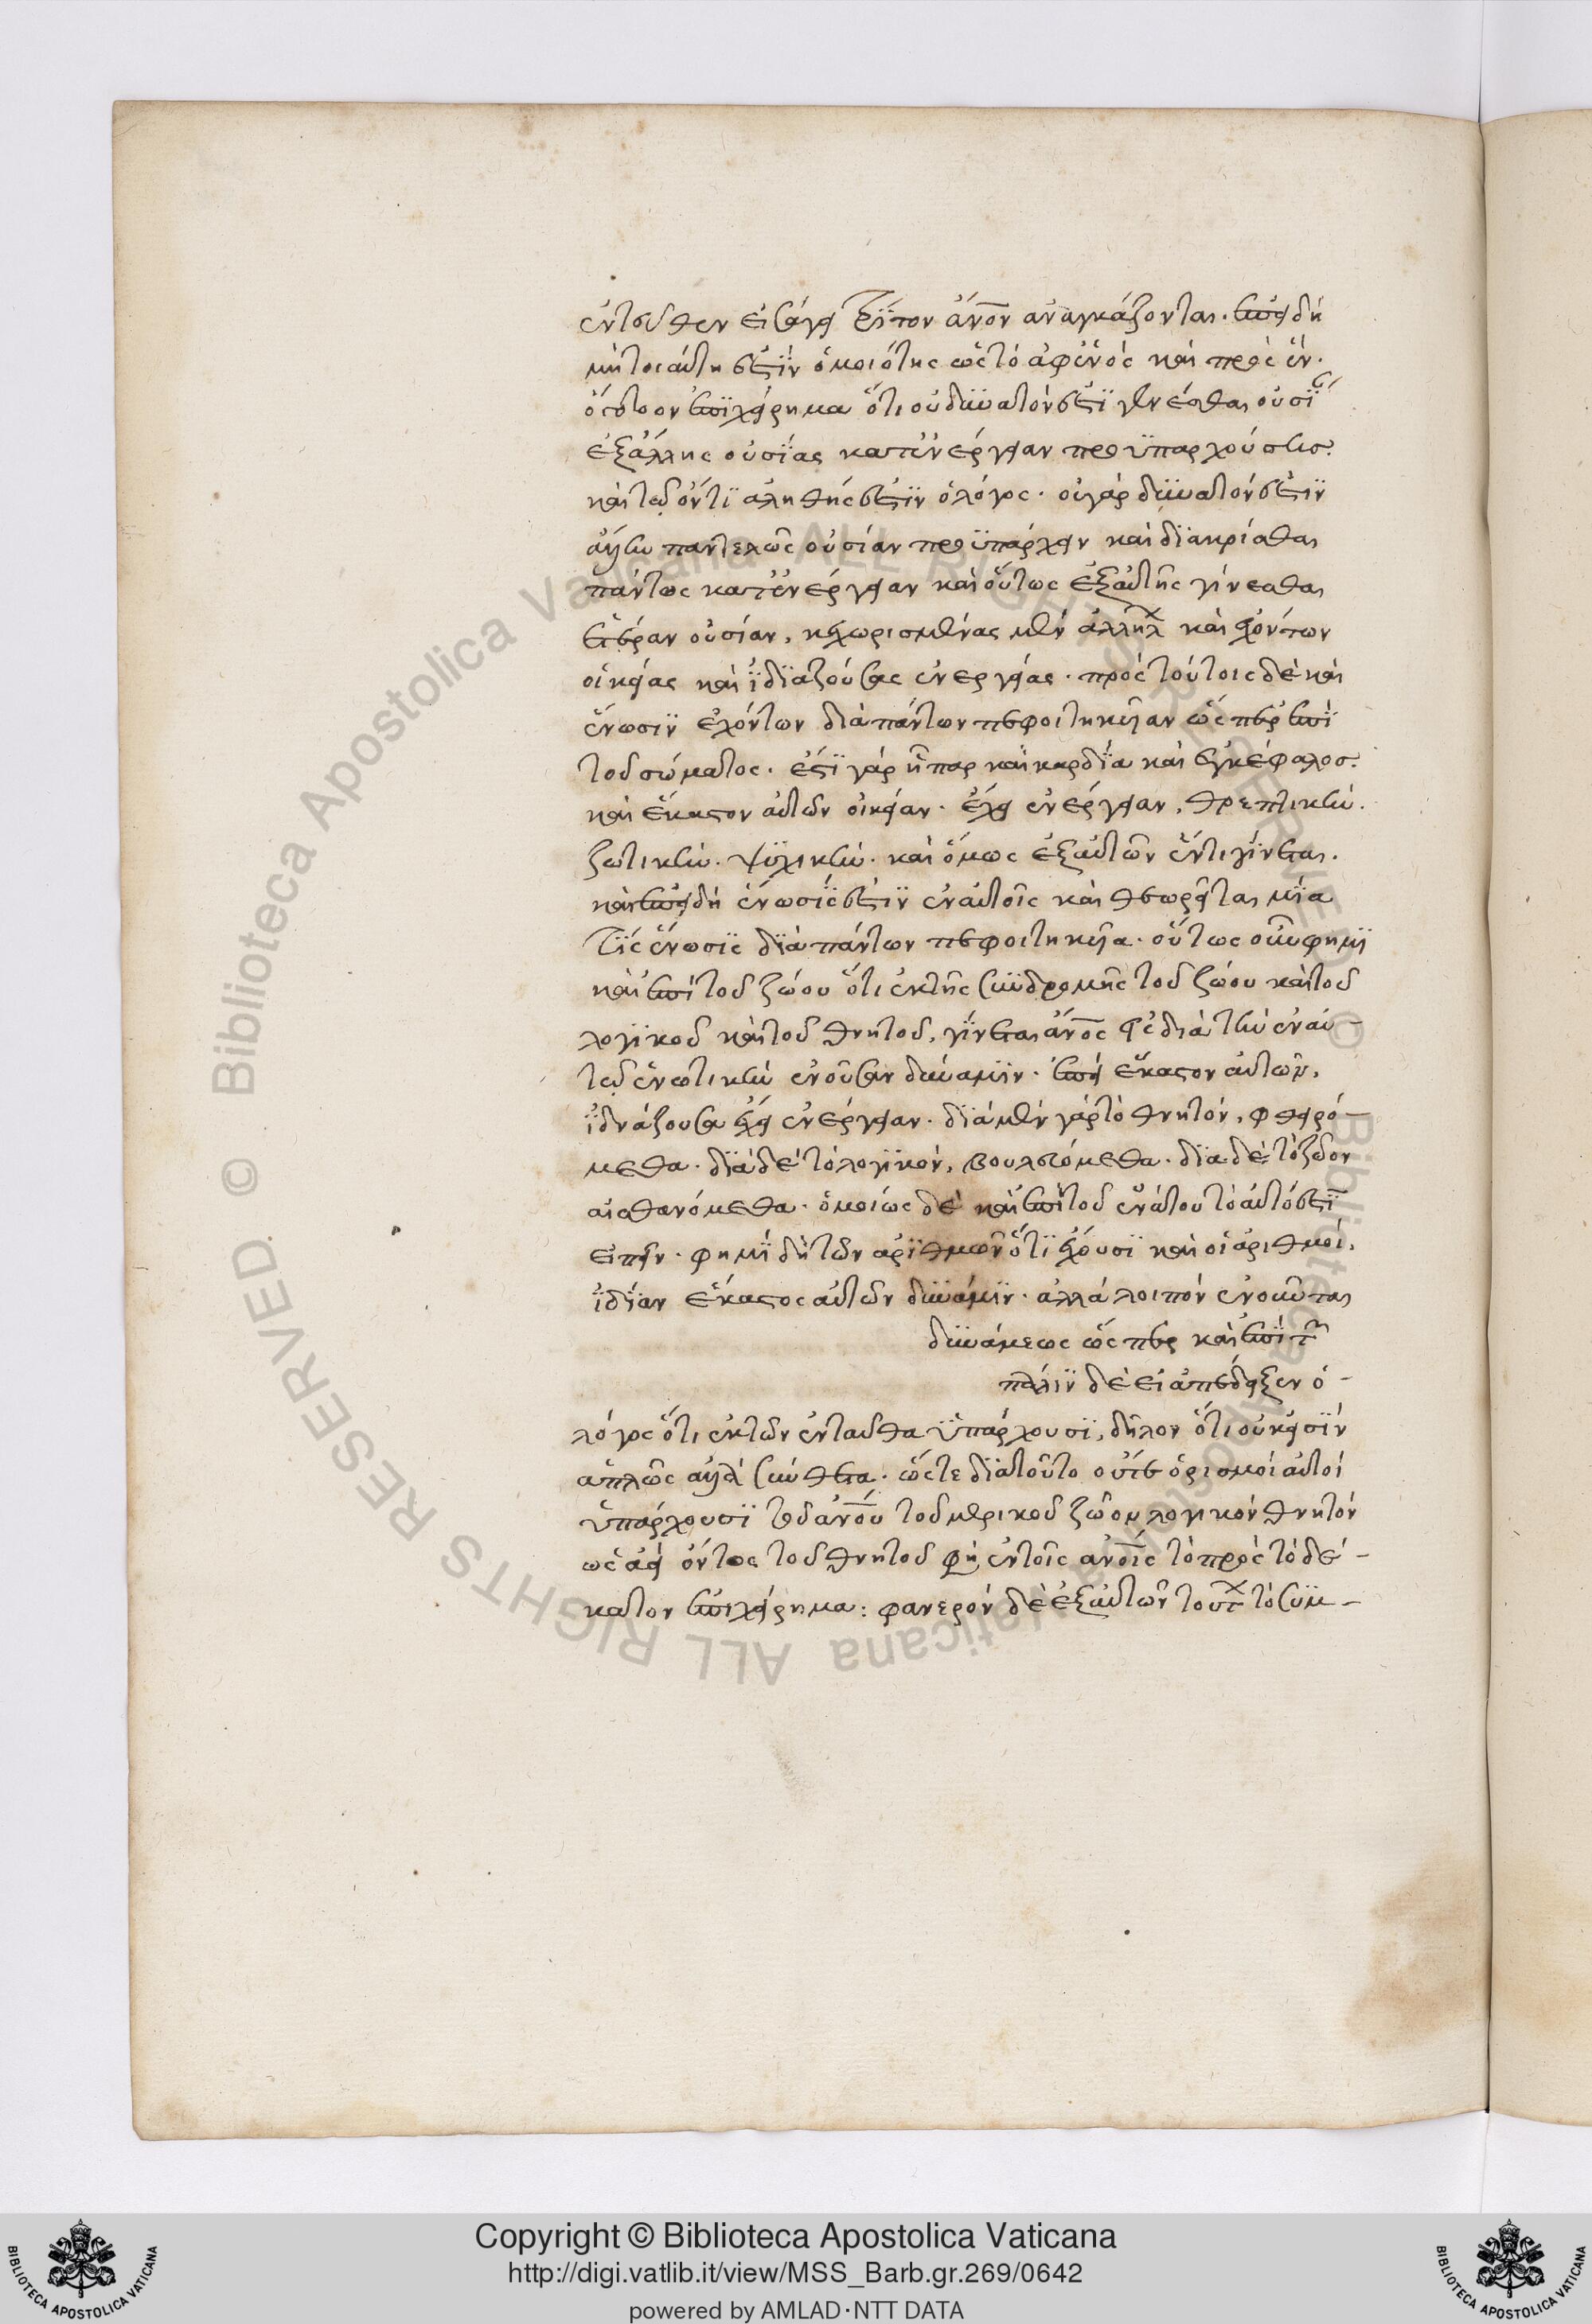 ἐντεῦθεν εἰσάγει τρίτον ἄνον ἀναγκάζονται. ἐπειδὴ
μὴ τοιαύτη ἐστὶν ὁμοιότης ὡς τὸ ἀφ' ἑνὸς καὶ πρὸς ἕν.
ἐπιχείρημα ὅτι οὐ δυνατόν ἐστι γενέσθαι οὐσί
ἐξ ἄλλης οὐσίας κατ' ἐνέργειαν προϋπαρχούσης.
καὶ τῷ ὄντι ἀληθής ἐστιν ὁ λόγος. οὐ γάρ δυνατόν ἐστιν
παντελῶς οὐσίαν προϋπάρχειν καὶ διακρίσθαι
πάντως κατ' ἐνέργειαν καὶ οὕτως ἐξ αὐτῆς γίνεσθαι
ἑτέραν οὐσίαν, κεχωρισμένας μὲν ἀλλήλ καὶ ἐχόντων
οἰκείας καὶ ἰδιαζούσας ἐνεργείας. πρὸς τούτοις δὲ καὶ
ἕνωσιν ἐχόντων διὰ πάντων πεφοιτηκῖαν ὥσπερ ἐπὶ
τοῦ σώματος. ἐστὶ γὰρ ἧπαρ καὶ καρδία καὶ ἐγκέφαλος.
καὶ ἕκαστον αὐτῶν οἰκείαν. ἔχει ἐνέργειαν, θρεπτικήν.
ζωτικήν. ψυχικήν. καὶ ὅμως ἐξ αὐτῶν ἕν τι γίνεται.
καὶ ἐπειδὴ ἕνωσίς ἐστιν ἐν αὐτοῖς καὶ θεωρεῖται μία
τὶς ἕνωσις διὰ πάντων πεφοιτηκῖα. οὕτως οὖν φημὶ
καὶ ἐπὶ τοῦ ζώου ὅτι ἐκ τῆς συνδρομῆς τοῦ ζώου καὶ τοῦ
λογικοῦ καὶ τοῦ θνητοῦ, γίνεται ἄνος διὰ τὴν ἐν αὐ-
τῷ ἑνωτικὴν ἐνοῦσαν δύναμιν. ἐπεὶ ἕκαστον αὐτῶν,
ἰδιάζουσα ἔχει ἐνέργειαν. διὰ μὲν γάρ τὸ θνητόν, φθειρό-
μεθα. διὰ δὲ τὸ λογικόν, βουλευόμεθα. δια δὲ τὸ ζῶον
αἰσθανόμεθα. ὁμοίως δὲ καὶ ἐπὶ τοῦ ἐνάτου τὸ αὐτό ἐστὶ
εἰπεῖν. φημὶ δὴ τῶν ἀριθμῶν ὅτι ἔχουσι καὶ οἱ ἀριθμοί,
ἰδίαν ἕκαστος αὐτῶν δύναμιν. ἀλλά λοιπόν ἐνοικῦται
δυνάμεως ὥσπερ καὶ ἐπὶ τ
πάλιν δὲ εἰ ἀπέδειξεν ὁ-
λόγος ὅτι ἐκ τῶν ἐνταῦθα ὑπάρχουσι, δῆλον ὅτι οὐκ εἰσὶν
ἁπλῶς ἀλλὰ σύνθετα. ὥστε διατοῦτο οὔτε ὁρισμοί αὐτοί
ὑπάρχουσι τοῦ ἀνου τοῦ μερικοῦ ζῶον λογικόν θνητόν
ὡς ἀεὶ ὄντος τοῦ θνητοῦ ἐν τοῖς ἀνοις τὸ πρὸς τὸ δέ-
κατον ἐπιχείρημα: φανερόν δὲ ἐξ αὐτῶν τούτ τὸ συμ-
Copyright © Biblioteca Apostolica Vaticana
http://digi.vatlib.it/view/MSS_Barb.gr.269/0642
powered by AMLAD·NTT DATA
BIBLIOTECA APOSTOLICA VATICANA
BIBLIOTECA APOSTOLICA VATICANA
© Biblioteca Apostolica Vaticana ALL RIGHTS RESERVED
© Biblioteca Apostolica Vaticana ALL RIGHTS RESERVED